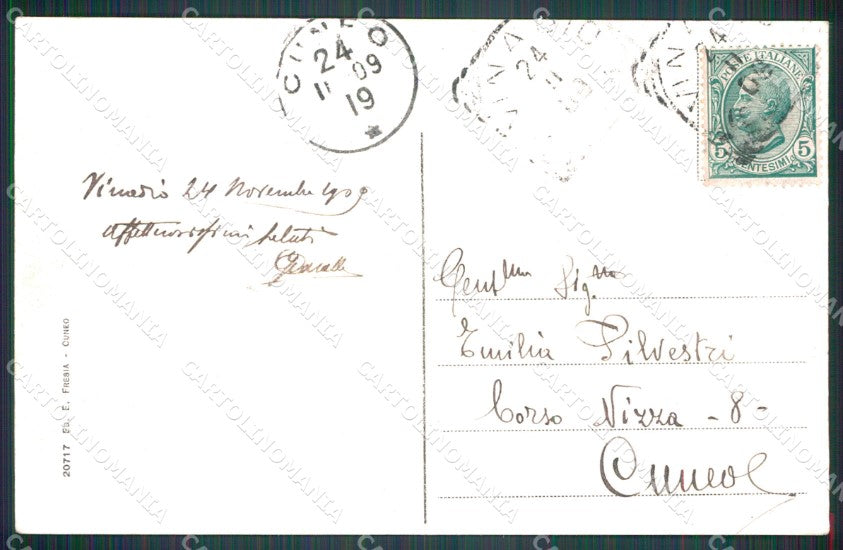 CUNEO
24
11 09
19
VINADIO
24
11
09
POSTE ITALIANE
5 CENTESIMI 5
Vinadio 24 Novembre 1909
Affettuosissimi saluti
Gent.ma Sig.na
Emilia Silvestri
Corso Nizza - 8 -
Cuneo
20717 Ed. E. Fresia - Cuneo
CARTOLINOMANIA